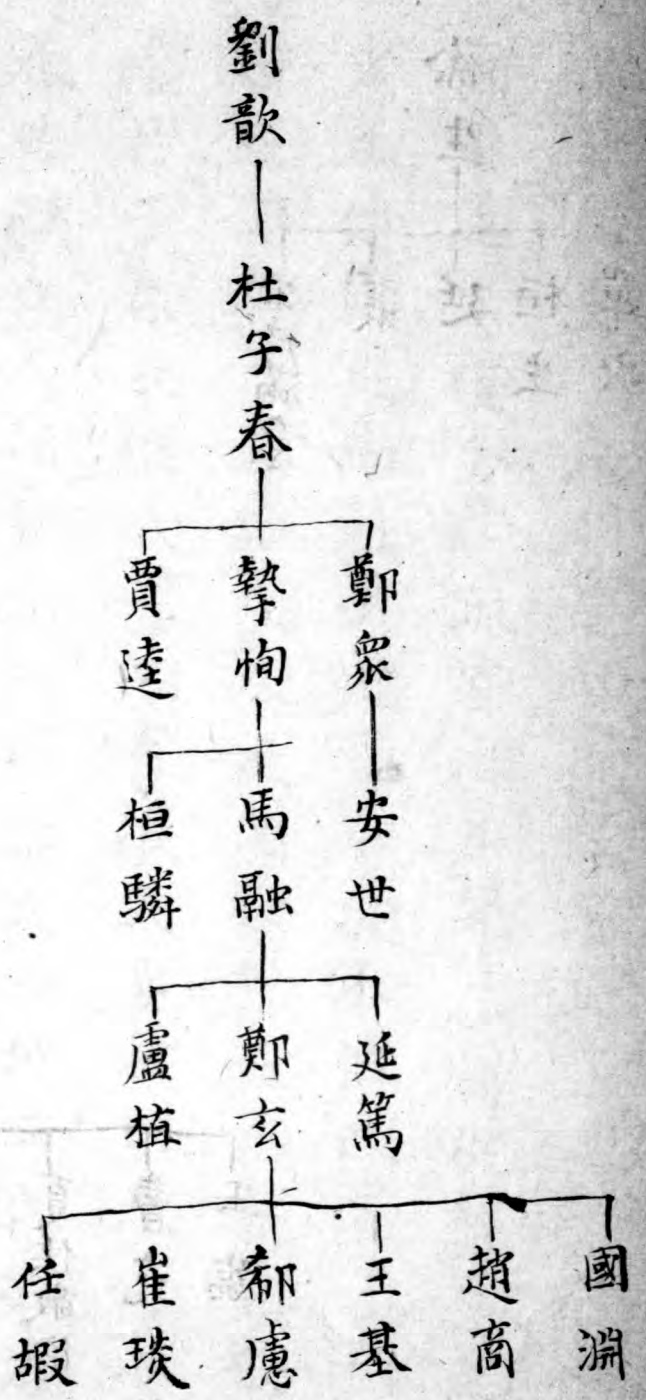 劉歆
杜子春
鄭眾
摯恂
賈逵
安世
馬融
桓驎
延篤
鄭玄
盧植
國淵
趙商
王基
郗慮
崔琰
任嘏